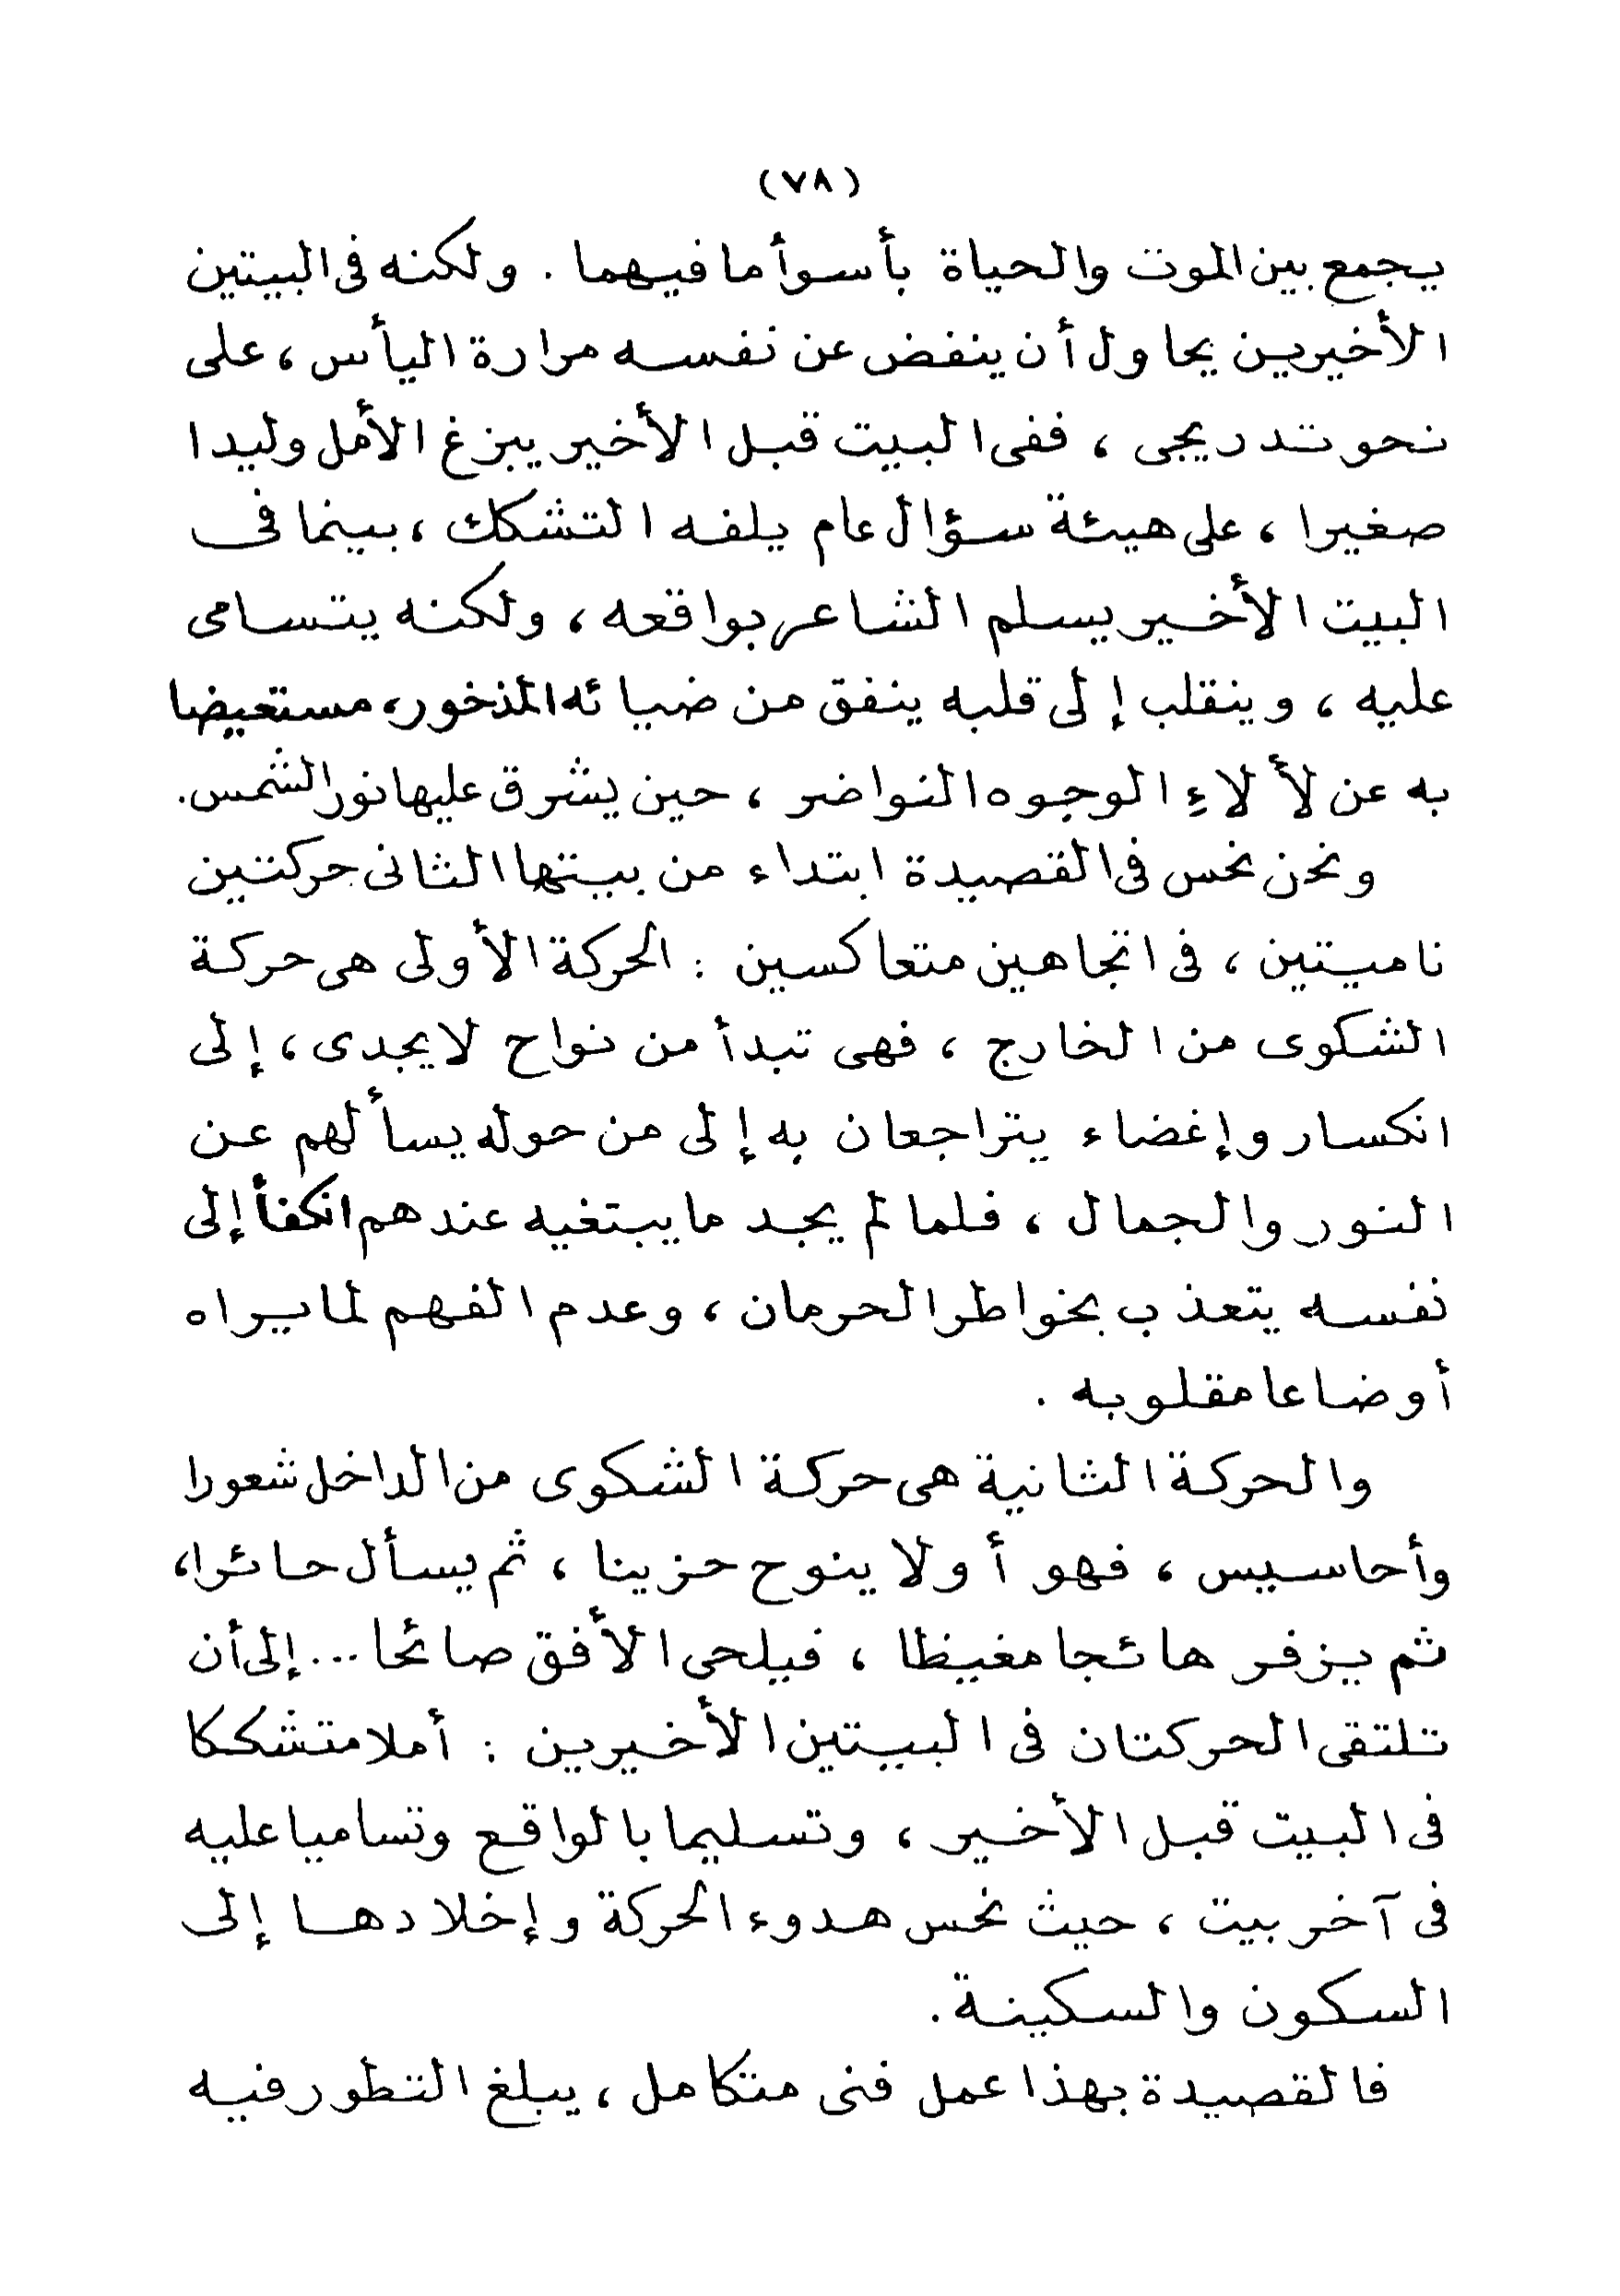 (٧٨)
يجمع بين الموت والحياة بأسوأ ما فيهما . ولكنه فى البيتين
الأخيرين يحاول أن ينفض عن نفسه مرارة اليأس ، على
نحو تدريجى ، ففى البيت قبل الأخير يبزغ الأمل وليدا
صغيرا ، على هيئة سؤال عام يلفه التشكك ، بينما فى
البيت الأخير يسلم الشاعر بواقعه ، ولكنه يتسامى
عليه ، وينقلب إلى قلبه ينفق من ضيائه المذخور، مستعيضا
به عن لألاء الوجوه النواضر ، حين يشرق عليها نور الشمس.
ونحن نحس فى القصيدة ابتداء من بيتها الثانى حركتين
ناميتين ، فى اتجاهين متعاكسين : الحركة الأولى هى حركة
الشكوى من الخارج ، فهى تبدأ من نواح لا يجدى ، إلى
انكسار وإغضاء يتراجعان به إلى من حوله يسألهم عن
النور والجمال ، فلما لم يجد ما يبتغيه عندهم انكفأ إلى
نفسه يتعذب بخواطر الحرمان ، وعدم الفهم لما يراه
أوضاعا مقلوبه .
والحركة الثانية هى حركة الشكوى من الداخل شعورا
وأحاسيس ، فهو أولا ينوح حزينا ، ثم يسأل حائرا،
ثم يزفر هائجا مغيظا ، فيلحى الأفق صائحا ... إلى أن
تلتقى الحركتان فى البيتين الأخيرين : أملا متشككا
فى البيت قبل الأخير ، وتسليما بالواقع وتساميا عليه
فى آخر بيت ، حيث نحس هدوء الحركة وإخلادها إلى
السكون والسكينة .
فالقصيدة بهذا عمل فنى متكامل ، يبلغ التطور فيه